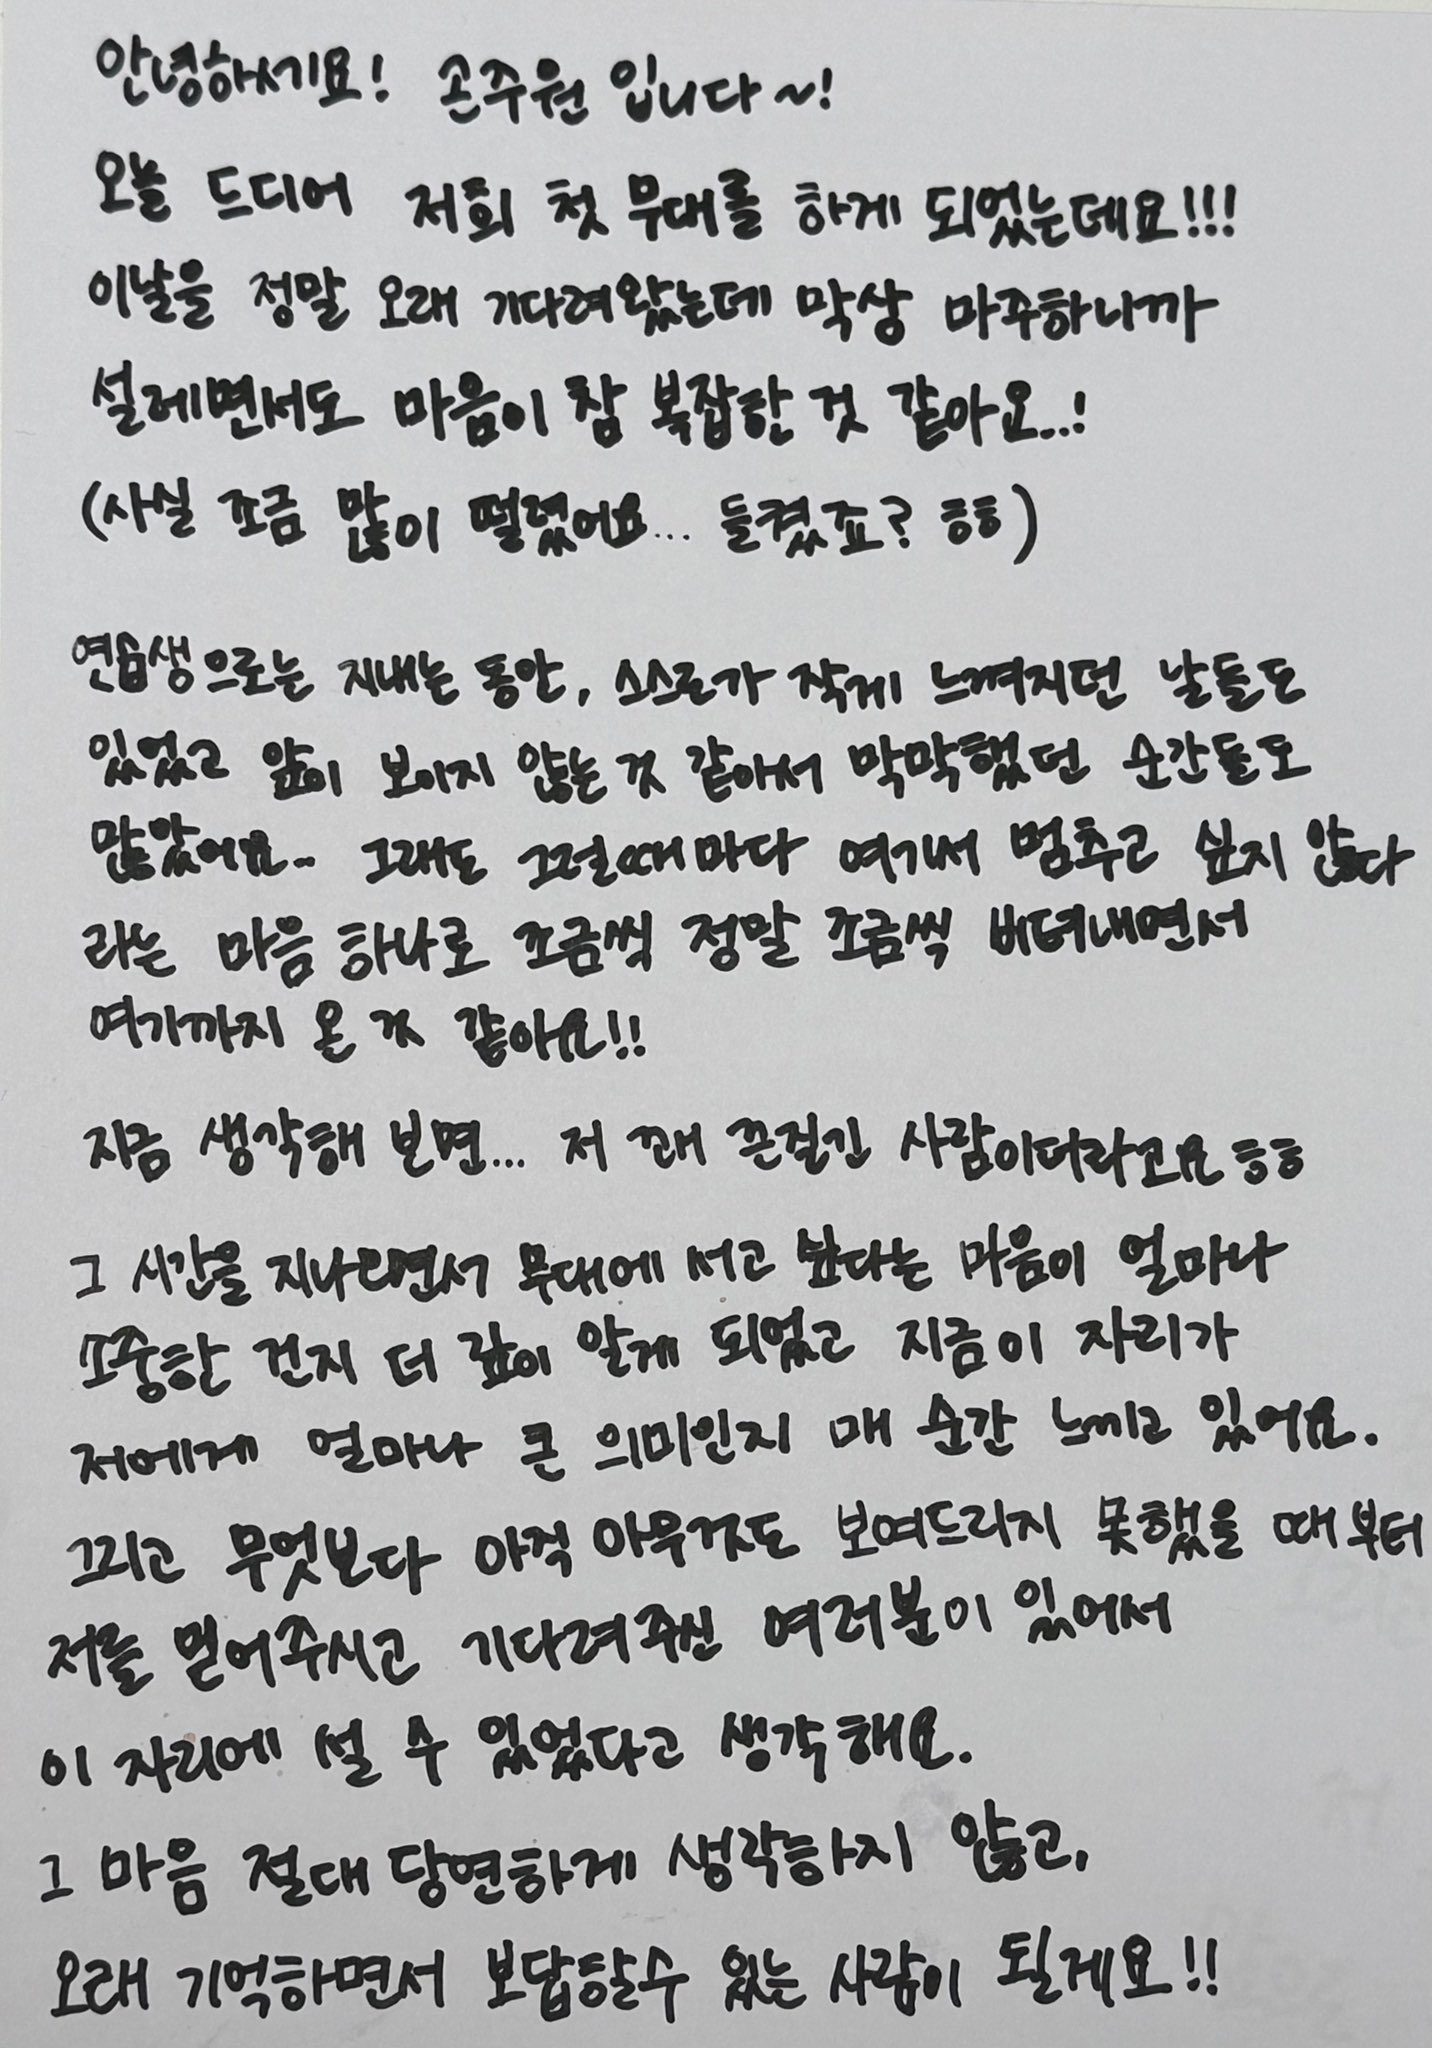 안녕하세요! 손주원 입니다~!
오늘 드디어 저희 첫 무대를 하게 되었는데요!!!
이날을 정말 오래 기다려왔는데 막상 마주하니까
설레면서도 마음이 참 복잡한 것 같아요..!
(사실 조금 많이 떨렸어요... 들켰죠? ㅎㅎ)
연습생으로는 지내는 동안, 스스로가 작게 느껴지던 날들도
있었고 앞이 보이지 않는 것 같아서 막막했던 순간들도
많았어요.. 그래도 그럴때마다 여기서 멈추고 싶지 않다
라는 마음 하나로 조금씩 정말 조금씩 버텨내면서
여기까지 온 것 같아요!!
지금 생각해 보면... 저 꽤 끈질긴 사람이더라고요 ㅎㅎ
그 시간을 지나오면서 무대에 서고 싶다는 마음이 얼마나
소중한 건지 더 깊이 알게 되었고 지금 이 자리가
저에게 얼마나 큰 의미인지 매 순간 느끼고 있어요.
그리고 무엇보다 아직 아무것도 보여드리지 못했을 때부터
저를 믿어주시고 기다려주신 여러분이 있어서
이 자리에 설 수 있었다고 생각해요.
그 마음 절대 당연하게 생각하지 않고,
오래 기억하면서 보답할수 있는 사람이 될게요!!